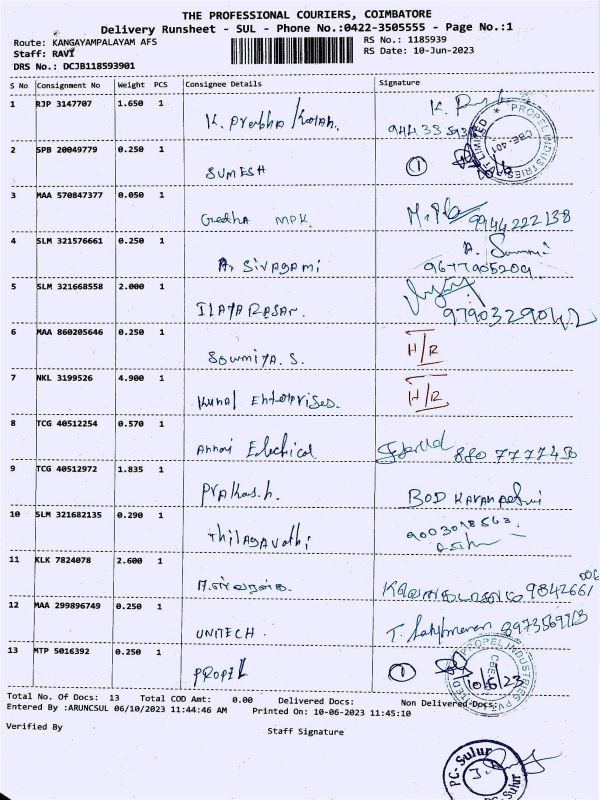 THE PROFESSIONAL COURIERS, COIMBATORE
Delivery Runsheet - SUL - Phone No.:0422-3505555 - Page No.:1
Route: KANGAYAMPALAYAM AFS
RS No.: 1185939
Staff: RAVI
RS Date: 10-Jun-2023
DRS No.: DCJB118593901
S No Consignment No Weight PCS Consignee Details Signature
1 RJP 3147707 1.650 1 K. Prabha
2 SPB 20049779 0.250 1 SUMESH 1
PROPEL INDUSTRIES LIMITED CBE-401
3 MAA 570847377 0.050 1 Geetha MPK. 9944222138
4 SLM 321576661 0.250 1 A. SIVAGAMI 9677905209
5 SLM 321668558 2.000 1 ILAYARASAN. 9790329042
6 MAA 860205646 0.250 1 SOWMIYA. S. H/R
7 NKL 3199526 4.900 1 Kunal Enterprises. H/R
8 TCG 40512254 0.570 1 Annai Electrical
9 TCG 40512972 1.835 1 Prakash.
10 SLM 321682135 0.290 1 Thilagavathi
11 KLK 7824078 2.600 1
12 MAA 299896749 0.250 1 UNITECH.
13 MTP 5016392 0.250 1 PROPEL 1 10/6/23
PROPEL INDUSTRIES PVT LIMITED CBE
Total No. Of Docs: 13 Total COD Amt: 0.00 Delivered Docs: Non Delivered Docs:
Entered By :ARUNCSUL 06/10/2023 11:44:46 AM Printed On: 10-06-2023 11:45:10
Verified By Staff Signature
PC-Sulur